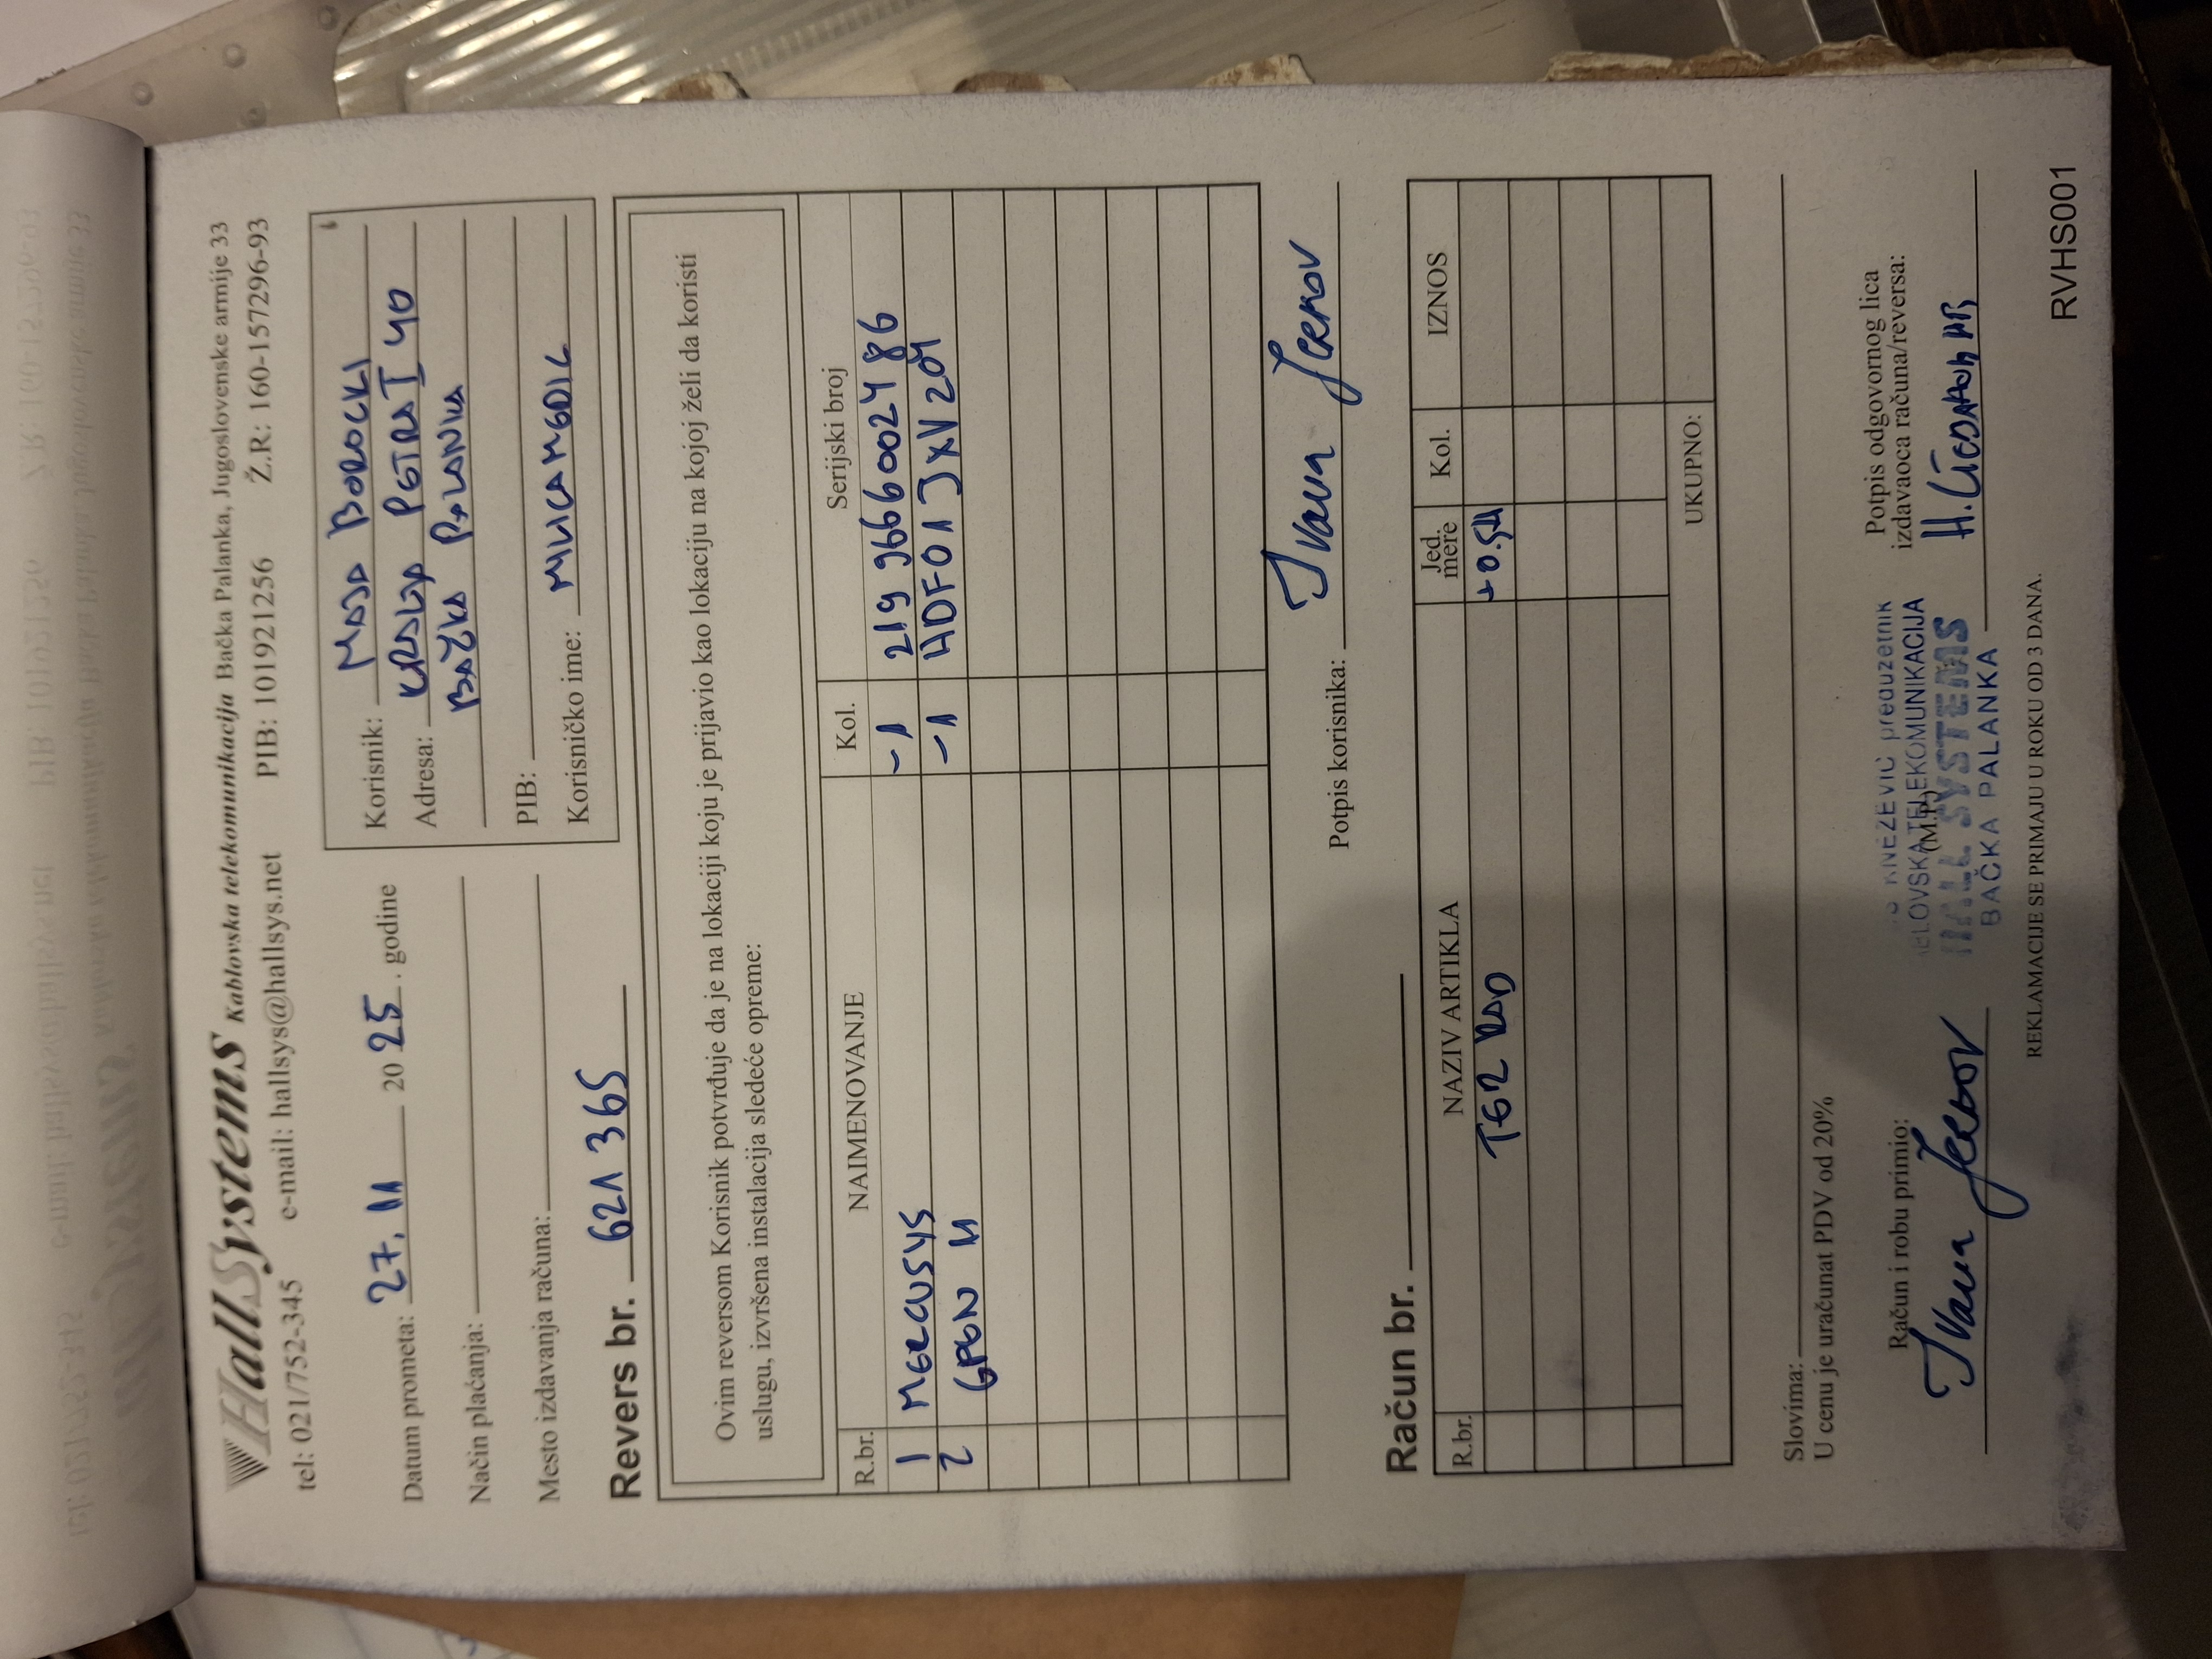 HallSystems Kablovska telekomunikacija Bačka Palanka, Jugoslovenske armije 33
tel: 021/752-345 e-mail: hallsys@hallsys.net PIB: 101921256 Ž.R: 160-157296-93
Datum prometa: 27. 11 20 25 . godine
Način plaćanja:
Mesto izdavanja računa:
Korisnik: MAJA BOROCKI
Adresa: KRALJA PETRA I 40
BAČKA PALANKA
PIB:
Korisničko ime:
Revers br. 621365
Ovim reversom Korisnik potvrđuje da je na lokaciji koju je prijavio kao lokaciju na kojoj želi da koristi
uslugu, izvršena instalacija sledeće opreme:
R.br. NAIMENOVANJE Kol. Serijski broj
1 MERCUSYS -1 2199666002486
2 GPON -1
Potpis korisnika: Ivana
Račun br.
R.br. NAZIV ARTIKLA Jed. mere Kol. IZNOS
UKUPNO:
Slovima:
U cenu je uračunat PDV od 20%
Račun i robu primio:
Ivana
(M.P.)
KNEŽEVIĆ preduzetnik
TELEKOMUNIKACIJA
HALL SYSTEMS
BAČKA PALANKA
Potpis odgovornog lica
izdavaoca računa/reversa:
REKLAMACIJE SE PRIMAJU U ROKU OD 3 DANA.
RVHS001